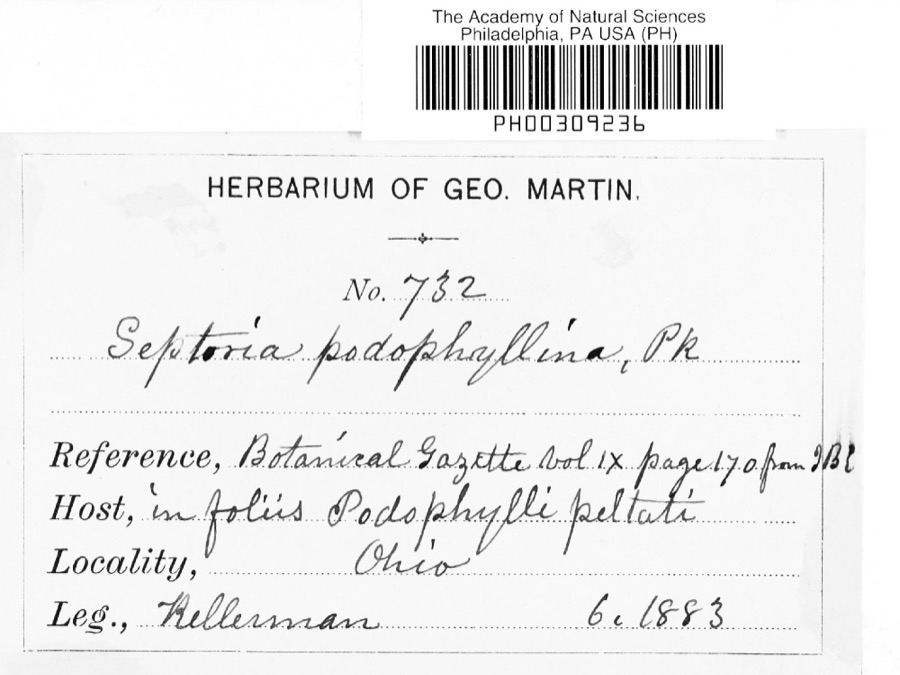 The Academy of Natural Sciences
Philadelphia, PA USA (PH)
PH00309236
HERBARIUM OF GEO. MARTIN.
No. 732
Septoria podophyllina, Pk
Reference, Botanical Gazette Vol IX page 170 from JBE
Host, in foliis Podophylli peltati
Locality, Ohio
Leg., Kellerman 6. 1883